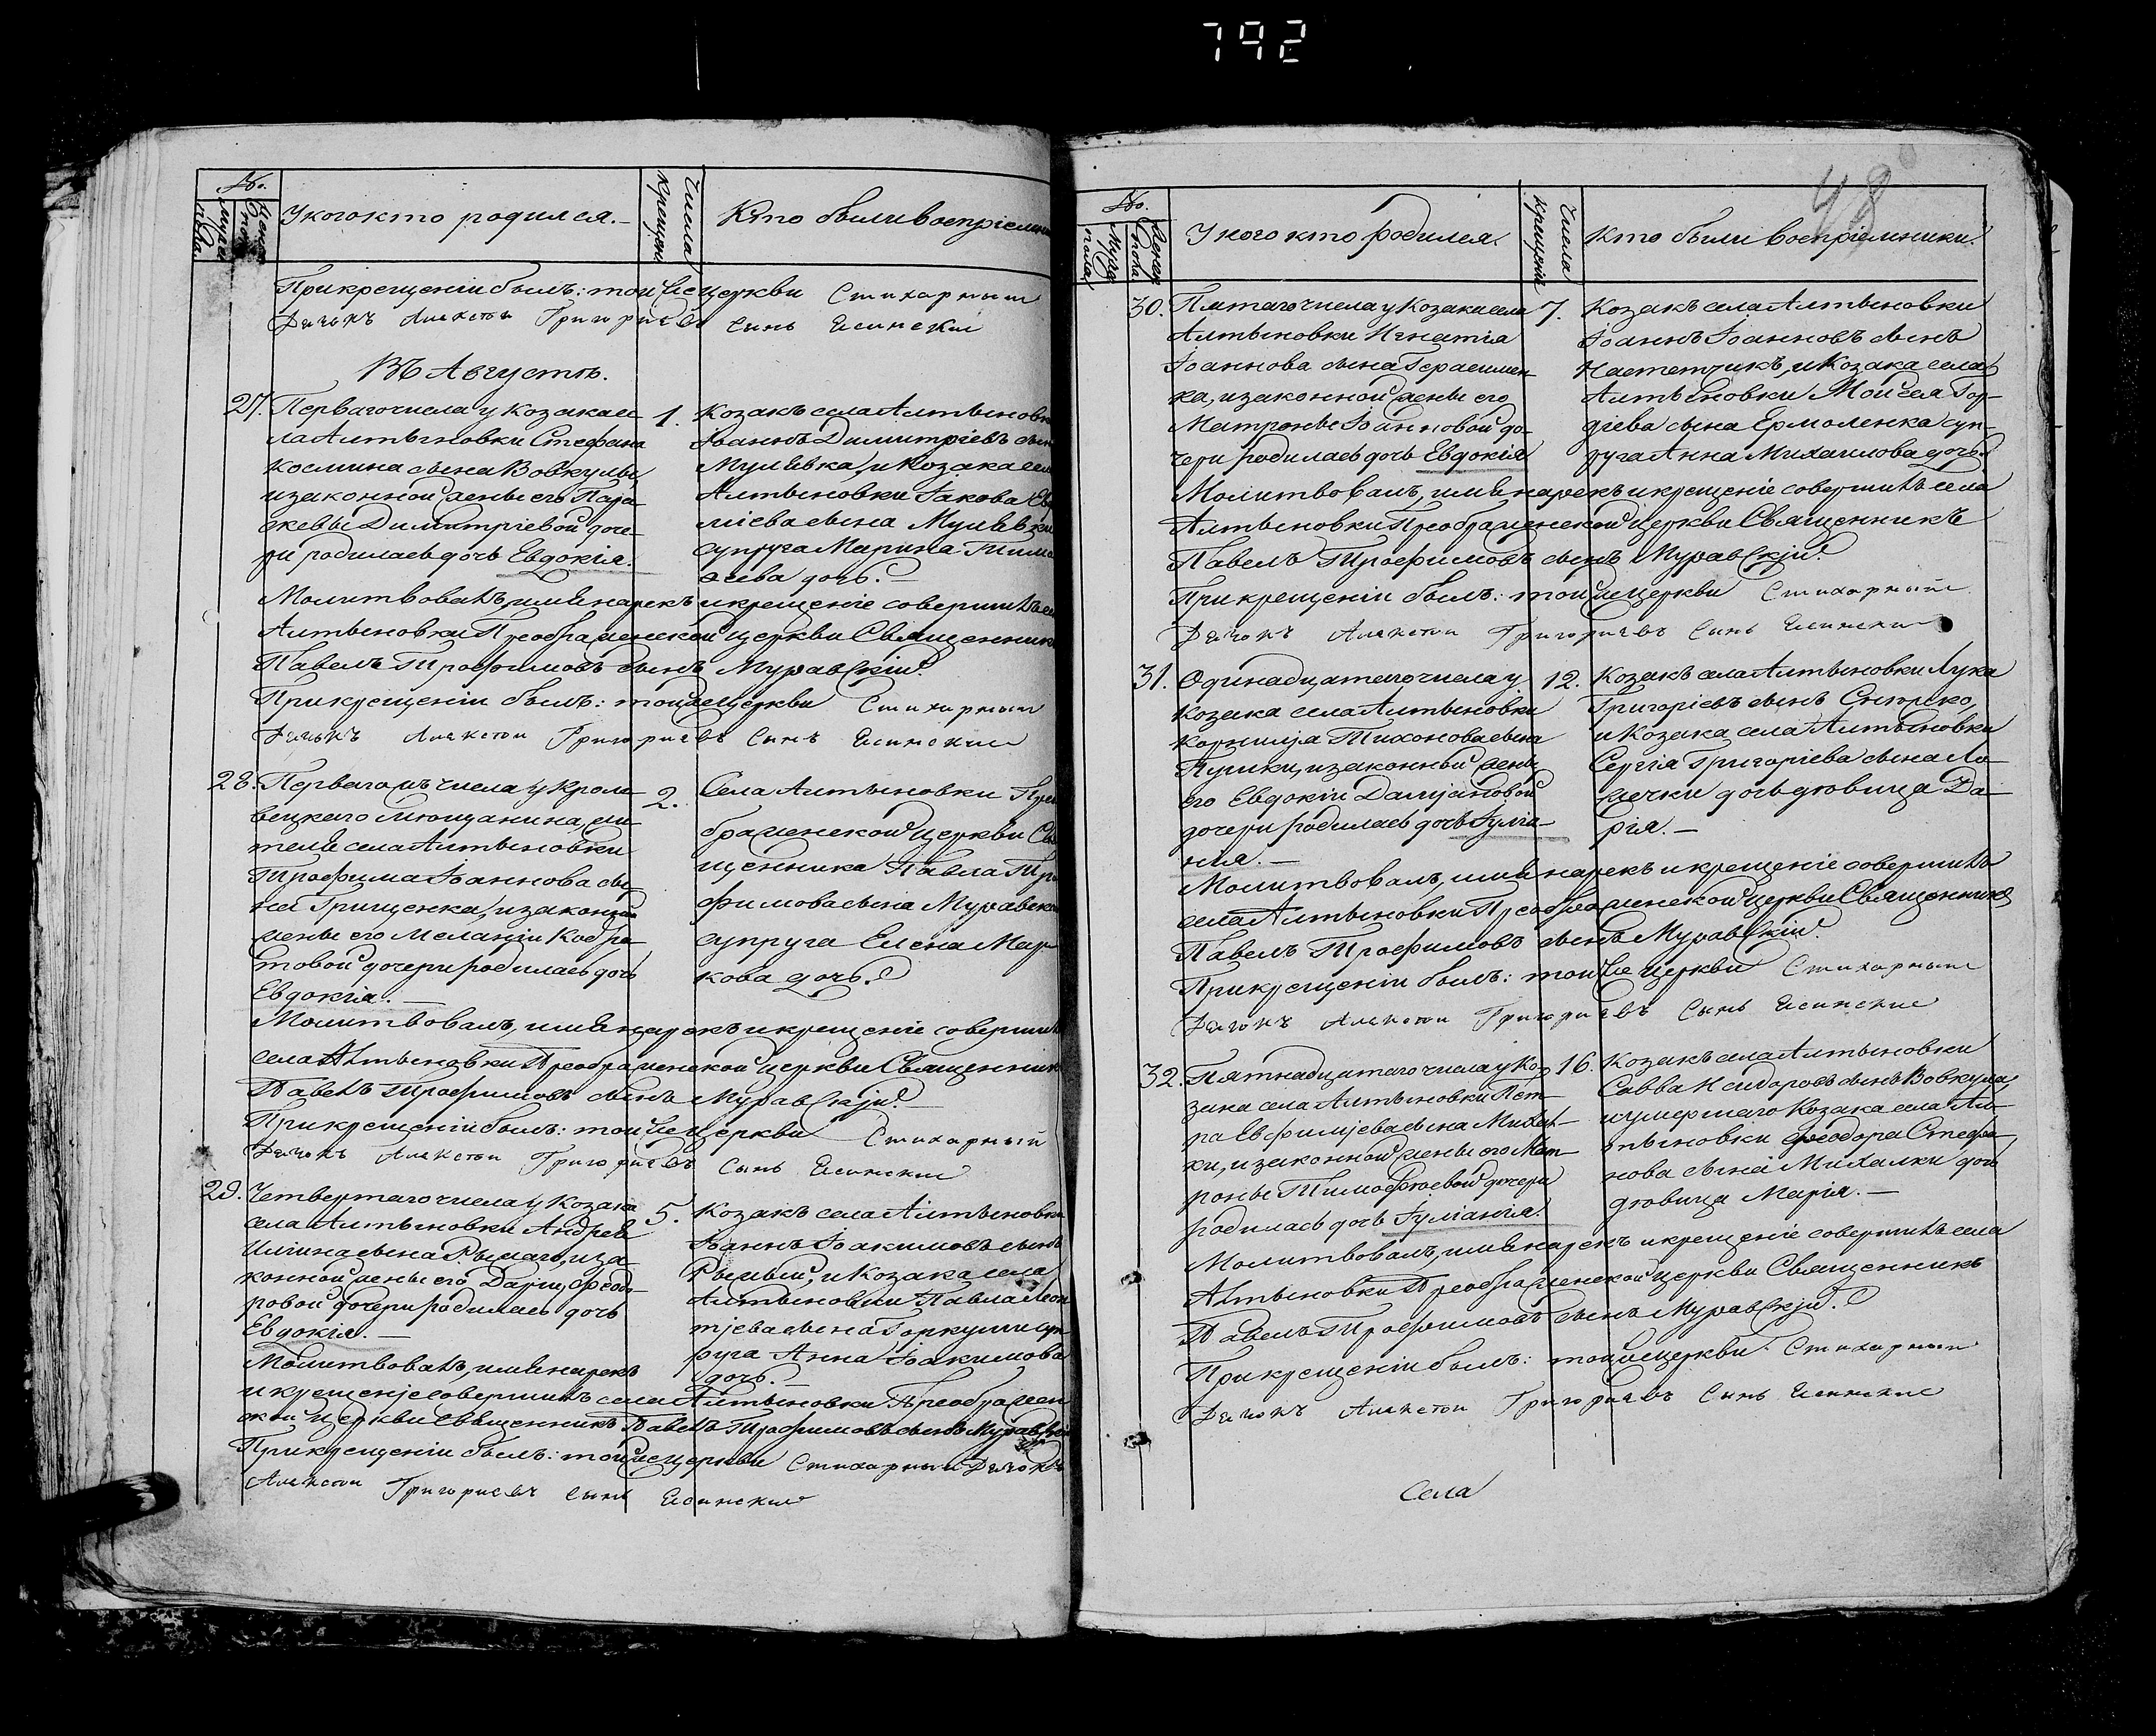 792
48
№.
Мужеска пола
Женска пола
У кого кто родился.
Числа крещен
Кто были воспріемни
При крещеніи былъ: той же церкви Стихарный
Дьячокъ Алексѣй Григорьевъ сынъ Ясинский
Въ Августѣ.
27. Перваго числа у козака се-
ла Алтыновки Стефана
Космина сына Вовкулы,
и законной жены его Пара-
скевы Димитріевой доче-
ри родилась дочь Евдокія.
1. Козакъ села Алтыновк
Іоаннъ Димитріевъ сын
Мулявка, и Козака села
Алтыновки Іакова Ев
міева сына Мулявки
супруга Марина Тимо
ѳеева дочь.
Молитвовалъ, имя нарекъ и крещеніе совершилъ се
Алтыновки Преображенской церкви Священник
Павелъ Трофимовъ сынъ Муравскій.
При крещеніи былъ: той же церкви Стихарный
Дьячокъ Алексѣй Григорьевъ сынъ Ясинский
28. Перваго числа у Кроле-
вецкаго мѣщанина, жи-
теля села Алтыновки
Трофима Іоаннова сы-
на Грищенка, и законной
жены его Меланіи Кодра-
товой дочери родилась дочь
Евдокія.
2. Села Алтыновки Прео
браженской церкви Свя
щенника Павла Тро
фимова сына Муравска
супруга Елена Мар
кова дочь.
Молитвовалъ, имя нарекъ и крещеніе совершилъ
села Алтыновки Преображенской церкви Священник
Павелъ Трофимовъ сынъ Муравскій.
При крещеніи былъ: той же церкви Стихарный
Дьячокъ Алексѣй Григорьевъ сынъ Ясинский
29. Четвертаго числа у Козака
села Алтыновки Андрея
Иліина сына Рыжаго, и за-
конной жены его Даріи Ѳеодо-
ровой дочери родилась дочь
Евдокія.
5. Козакъ села Алтыновки
Іоаннъ Іоакимовъ сынъ
Рыжый, и Козака села
Алтыновки Павла Леон
тіева сына Горкуши суп
руга Анна Іоакимова
дочь.
Молитвовалъ, имя нарекъ
и крещеніе совершилъ села Алтыновки Преображен
ской церкви Священникъ Павелъ Трофимовъ сынъ Муравскій
При крещеніи былъ: той же церкви Стихарный Дьячокъ
Алексѣй Григорьевъ сынъ Ясинский
№.
Мужа пола
Женск пола
У кого кто родился.
Числа крещенія
Кто были воспріемники.
30. Пятаго числа у Козака села
Алтыновки Игнатія
Іоаннова сына Герасимен-
ка, и законной жены его
Матроны Іоанновой до-
чери родилась дочь Евдокія
7. Козакъ села Алтыновки
Іоаннъ Іоанновъ сынъ
и Козака села
Алтыновки Моисея Гор-
діева сына Ермоленка суп-
руга Анна Михаилова дочь.
Молитвовалъ, имя нарекъ и крещеніе совершилъ села
Алтыновки Преображенской церкви Священникъ
Павелъ Трофимовъ сынъ Муравскій.
При крещеніи былъ: той же церкви Стихарный
Дьячокъ Алексѣй Григорьевъ сынъ Ясинский
31. Одинадцатаго числа у
Козака села Алтыновки
Корнилія Тихонова сына
Пурики, и законный жены
его Евдокіи Даміановой
дочери родилась дочь Іуліа-
нія.
12. Козакъ села Алтыновки Лука
Григоріевъ сынъ
и Козака села Алтыновки
Сергія Григоріева сына Ло-
жечки дочь дѣвица Да-
рія.
Молитвовалъ, имя нарекъ и крещеніе совершилъ
села Алтыновки Преображенской церкви Священникъ
Павелъ Трофимовъ сынъ Муравскій.
При крещеніи былъ: той же церкви Стихарный
Дьячокъ Алексѣй Григорьевъ сынъ Ясинский
32. Пятнадцатаго числа у Ко-
зака села Алтыновки Пет-
ра Евфиміева сына Михал-
ки, и законной жены его Мат-
роны Тимоѳѣевой дочери
родилась дочь Іуліанія.
16. Козакъ села Алтыновки
Савва Исидоровъ сынъ Вовкула,
и умершаго Козака села Ал-
тыновки Ѳеодора Стефа-
нова сына Михалки дочь
дѣвица Марія.
Молитвовалъ, имя нарекъ и крещеніе совершилъ села
Алтыновки Преображенской церкви Священникъ
Павелъ Трофимовъ сынъ Муравскій.
При крещеніи былъ: той же церкви Стихарный
Дьячокъ Алексѣй Григорьевъ сынъ Ясинский
Села